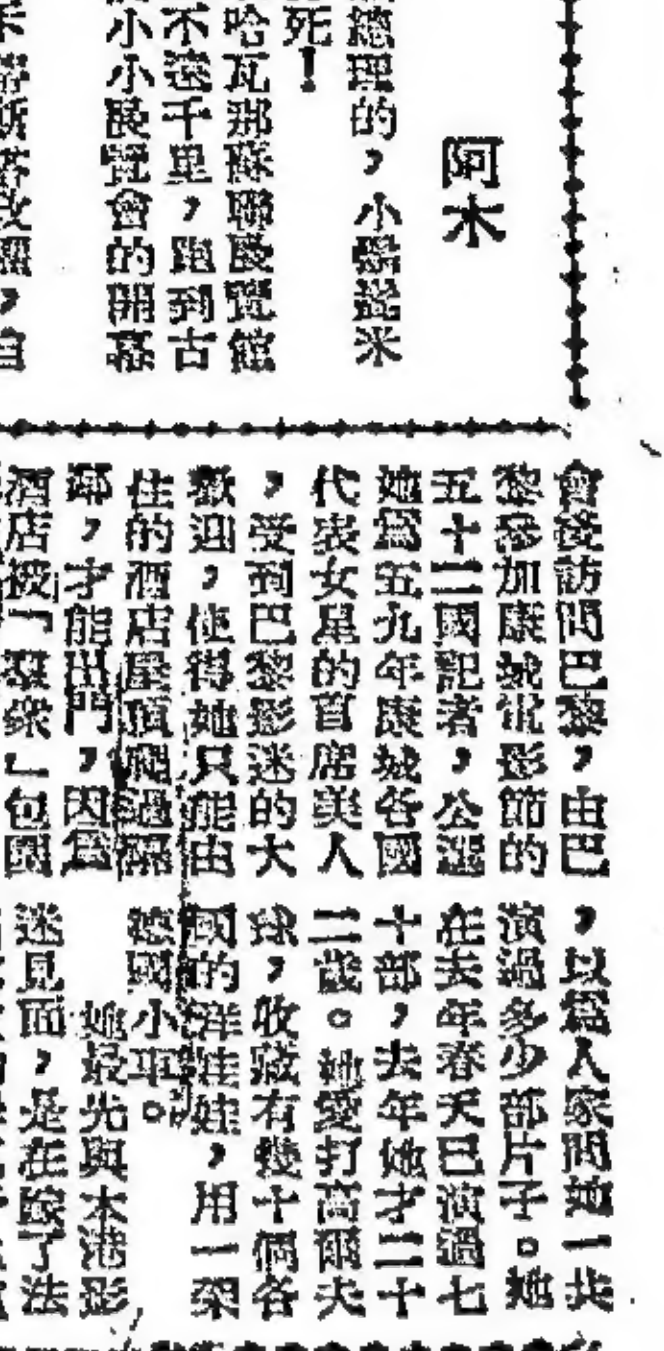 阿木
總理的，小愚從米
死！
哈瓦那蘇聯展覽館
不遠千里，跑到古
小小展覽會的開幕
會後訪問巴黎，由巴
黎參加康城電影節的
五十二國記者，公選
她為五九年康城各國
代表女星的首席美人
，受到巴黎影迷的大
歡迎，使得她只能由
住的酒店屋頂爬過隔
鄰，才能出門，因為
酒店被「羣衆」包圍
，以為人家問她一共
演過多少部片子。她
在去年春天已演過七
十部，去年她才二十
二歲。她愛打高爾夫
球，收藏有幾十個各
國的洋娃娃，用一架
德國小車。
她最先與本港影
迷見面，是在除了法